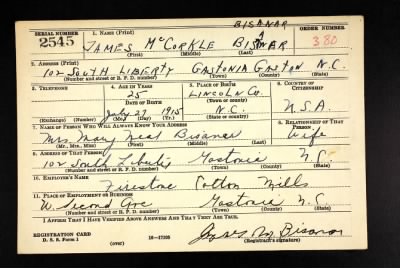 SERIAL NUMBER 1. NAME (Print) BISANAR ORDER NUMBER
2545 JAMES McCORKLE BISANAR 380
(First) (Middle) (Last)
2. ADDRESS (Print)
102 SOUTH LIBERTY GASTONIA GASTON N.C.
(Number and street or R. F. D. number) (Town) (County) (State)
3. TELEPHONE 4. AGE IN YEARS 5. PLACE OF BIRTH 6. COUNTRY OF CITIZENSHIP
25 LINCOLN CO.
DATE OF BIRTH (Town or county)
July 29 1915 N.C. U.S.A.
(Exchange) (Number) (Mo.) (Day) (Yr.) (State or country)
7. NAME OF PERSON WHO WILL ALWAYS KNOW YOUR ADDRESS 8. RELATIONSHIP OF THAT PERSON
Mrs. Mary Neal Bisanar Wife
(Mr., Mrs., Miss) (First) (Middle) (Last)
9. ADDRESS OF THAT PERSON
102 South Liberty Gastonia N.C.
(Number and street or R. F. D. number) (Town) (County) (State)
10. EMPLOYER'S NAME
Firestone Cotton Mills
11. PLACE OF EMPLOYMENT OR BUSINESS
W. Second Ave Gastonia N.C.
(Number and street or R. F. D. number) (Town) (County) (State)
I AFFIRM THAT I HAVE VERIFIED ABOVE ANSWERS AND THAT THEY ARE TRUE.
REGISTRATION CARD
D. S. S. Form 1 (over) 16—17105 James M Bisanar
(Registrant's signature)